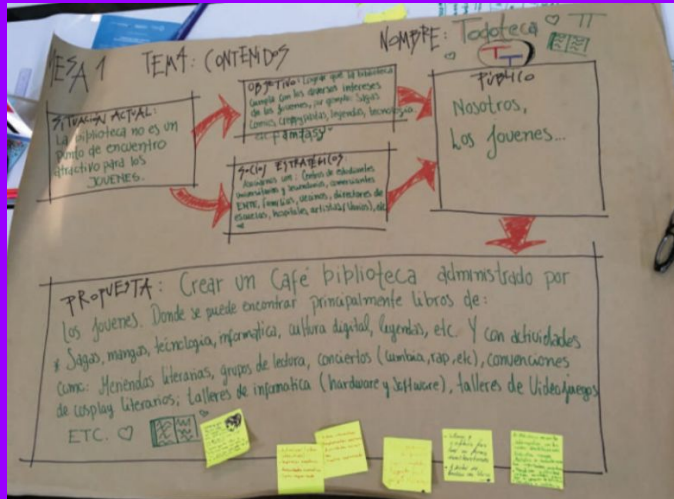 MESA 1 TEMA: CONTENIDOS
NOMBRE: Todoteca
SITUACIÓN ACTUAL:
La biblioteca no es un
punto de encuentro
atractivo para los
JOVENES.
OBJETIVO: Lograr que la biblioteca
cumpla con los diversos intereses
de los jovenes, por ejemplo: Sagas
Comics, legendas, tecnologia,
etc. Fantasy
SOCIOS ESTRATÉGICOS:
Asociarnos con: Centros de estudiantes
universitarios y secundarios, comerciantes
familias, vecinos, directores de
escuelas, hospitales, artistas, etc
PÚBLICO
Nosotros,
Los Jovenes...
PROPUESTA: Crear un Café biblioteca administrado por
los jovenes. Donde se puede encontrar principalmente libros de:
* Sagas, mangas, tecnologia, informatica, cultura digital, legendas, etc. Y con actividades
como: Meriendas literarias, grupos de lectura, conciertos (cumbia, rap, etc), convenciones
de cosplay literarios; talleres de informatica (hardware y Software), talleres de Videojuegos
ETC.